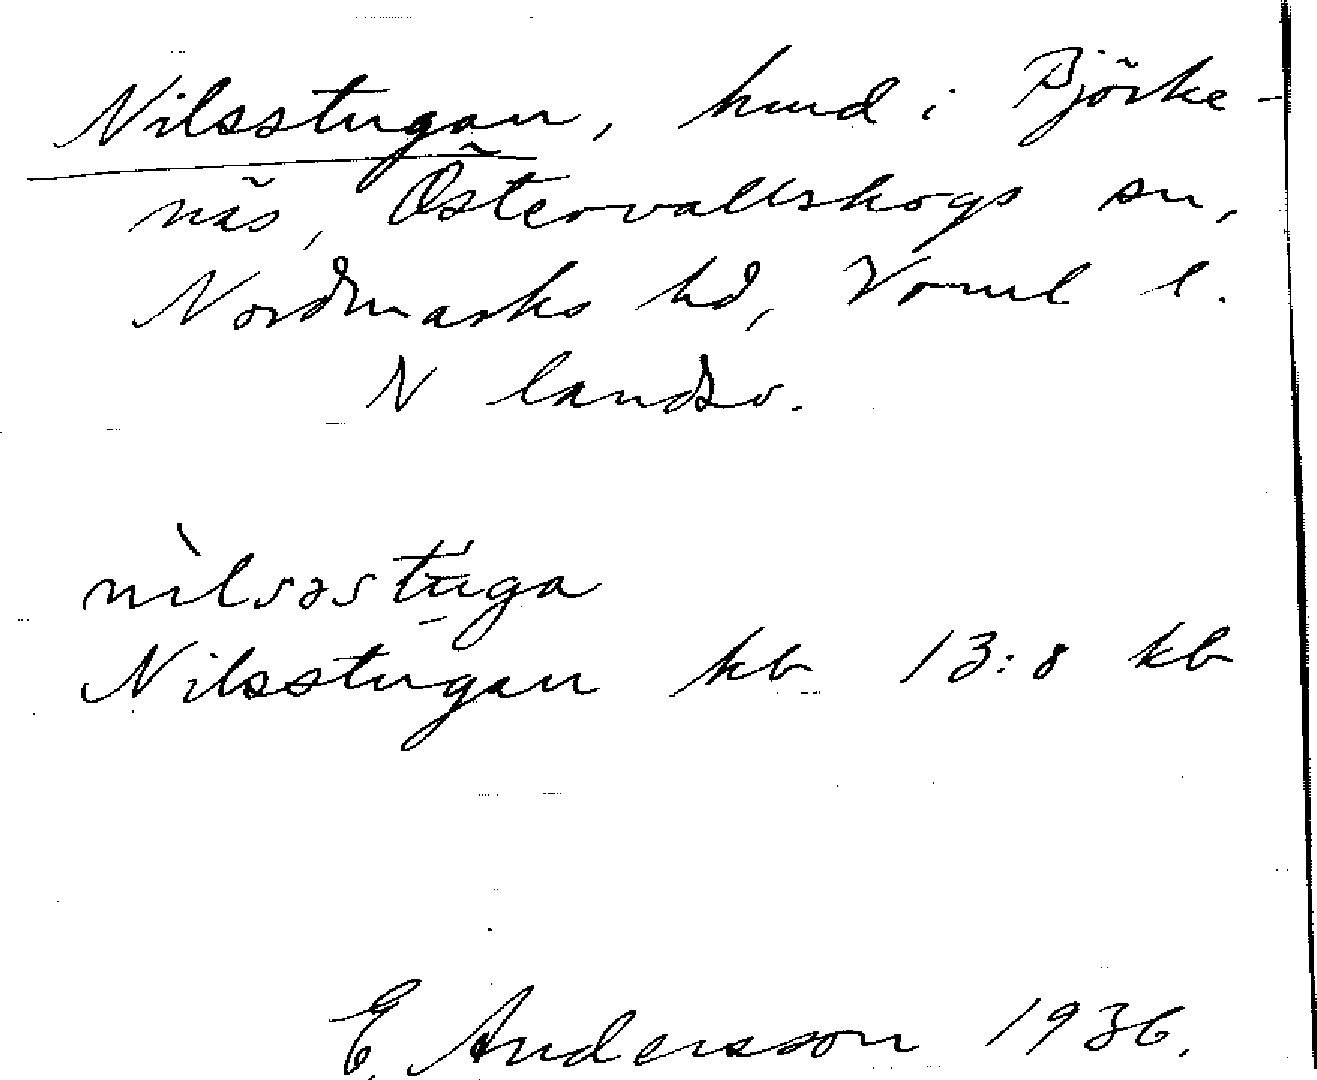 Nilsstugan, hmd i Björke-
näs, Östervallskogs sn,
Nordmarks hd, Värml l.
N landsv.
nìlsəstúga
Nilsstugan kb 13:8 kb
E. Andersson 1936.